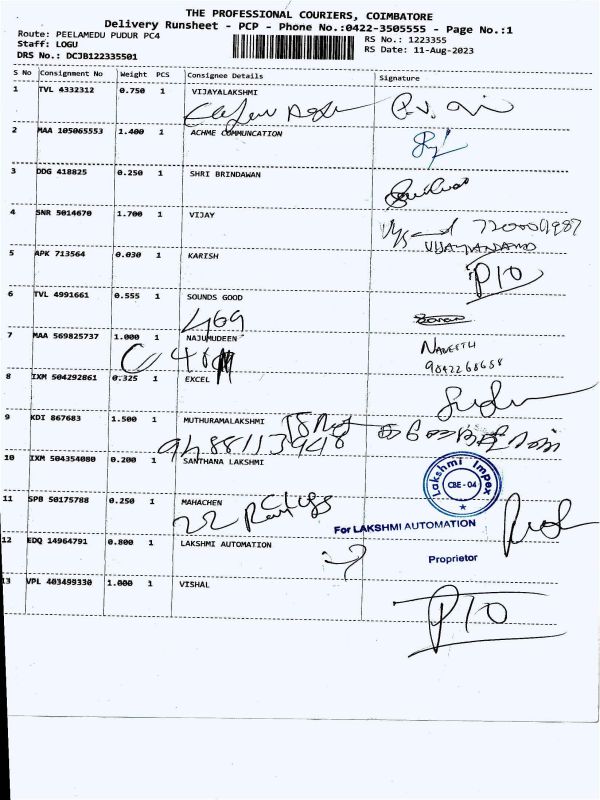 THE PROFESSIONAL COURIERS, COIMBATORE
Delivery Runsheet - PCP - Phone No.:0422-3505555 - Page No.:1
Route: PEELAMEDU PUDUR PC4
RS No.: 1223355
Staff: LOGU
RS Date: 11-Aug-2023
DRS No.: DCJB122335501
S No Consignment No Weight PCS Consignee Details Signature
1 TVL 4332312 0.750 1 VIJAYALAKSHMI
2 MAA 105065553 1.400 1 ACHME COMMUNCATION
3 DDG 418825 0.250 1 SHRI BRINDAWAN
4 SNR 5014670 1.700 1 VIJAY
VIJAYANANDAMD
5 APK 713564 0.030 1 KARISH
PIO
6 TVL 4991661 0.555 1 SOUNDS GOOD
469
7 MAA 569825737 1.000 1 NAJUMUDEEN
NAVEETH
9842268658
8 IXM 504292861 0.325 1 EXCEL
9 KDI 867683 1.500 1 MUTHURAMALAKSHMI
9488113948
10 IXM 504354080 0.200 1 SANTHANA LAKSHMI
Lakshmi Impex
CBE - 04
11 SPB 50175788 0.250 1 MAHACHEN
For LAKSHMI AUTOMATION
12 EDQ 14964791 0.800 1 LAKSHMI AUTOMATION
Proprietor
13 VPL 403499330 1.000 1 VISHAL
PIO